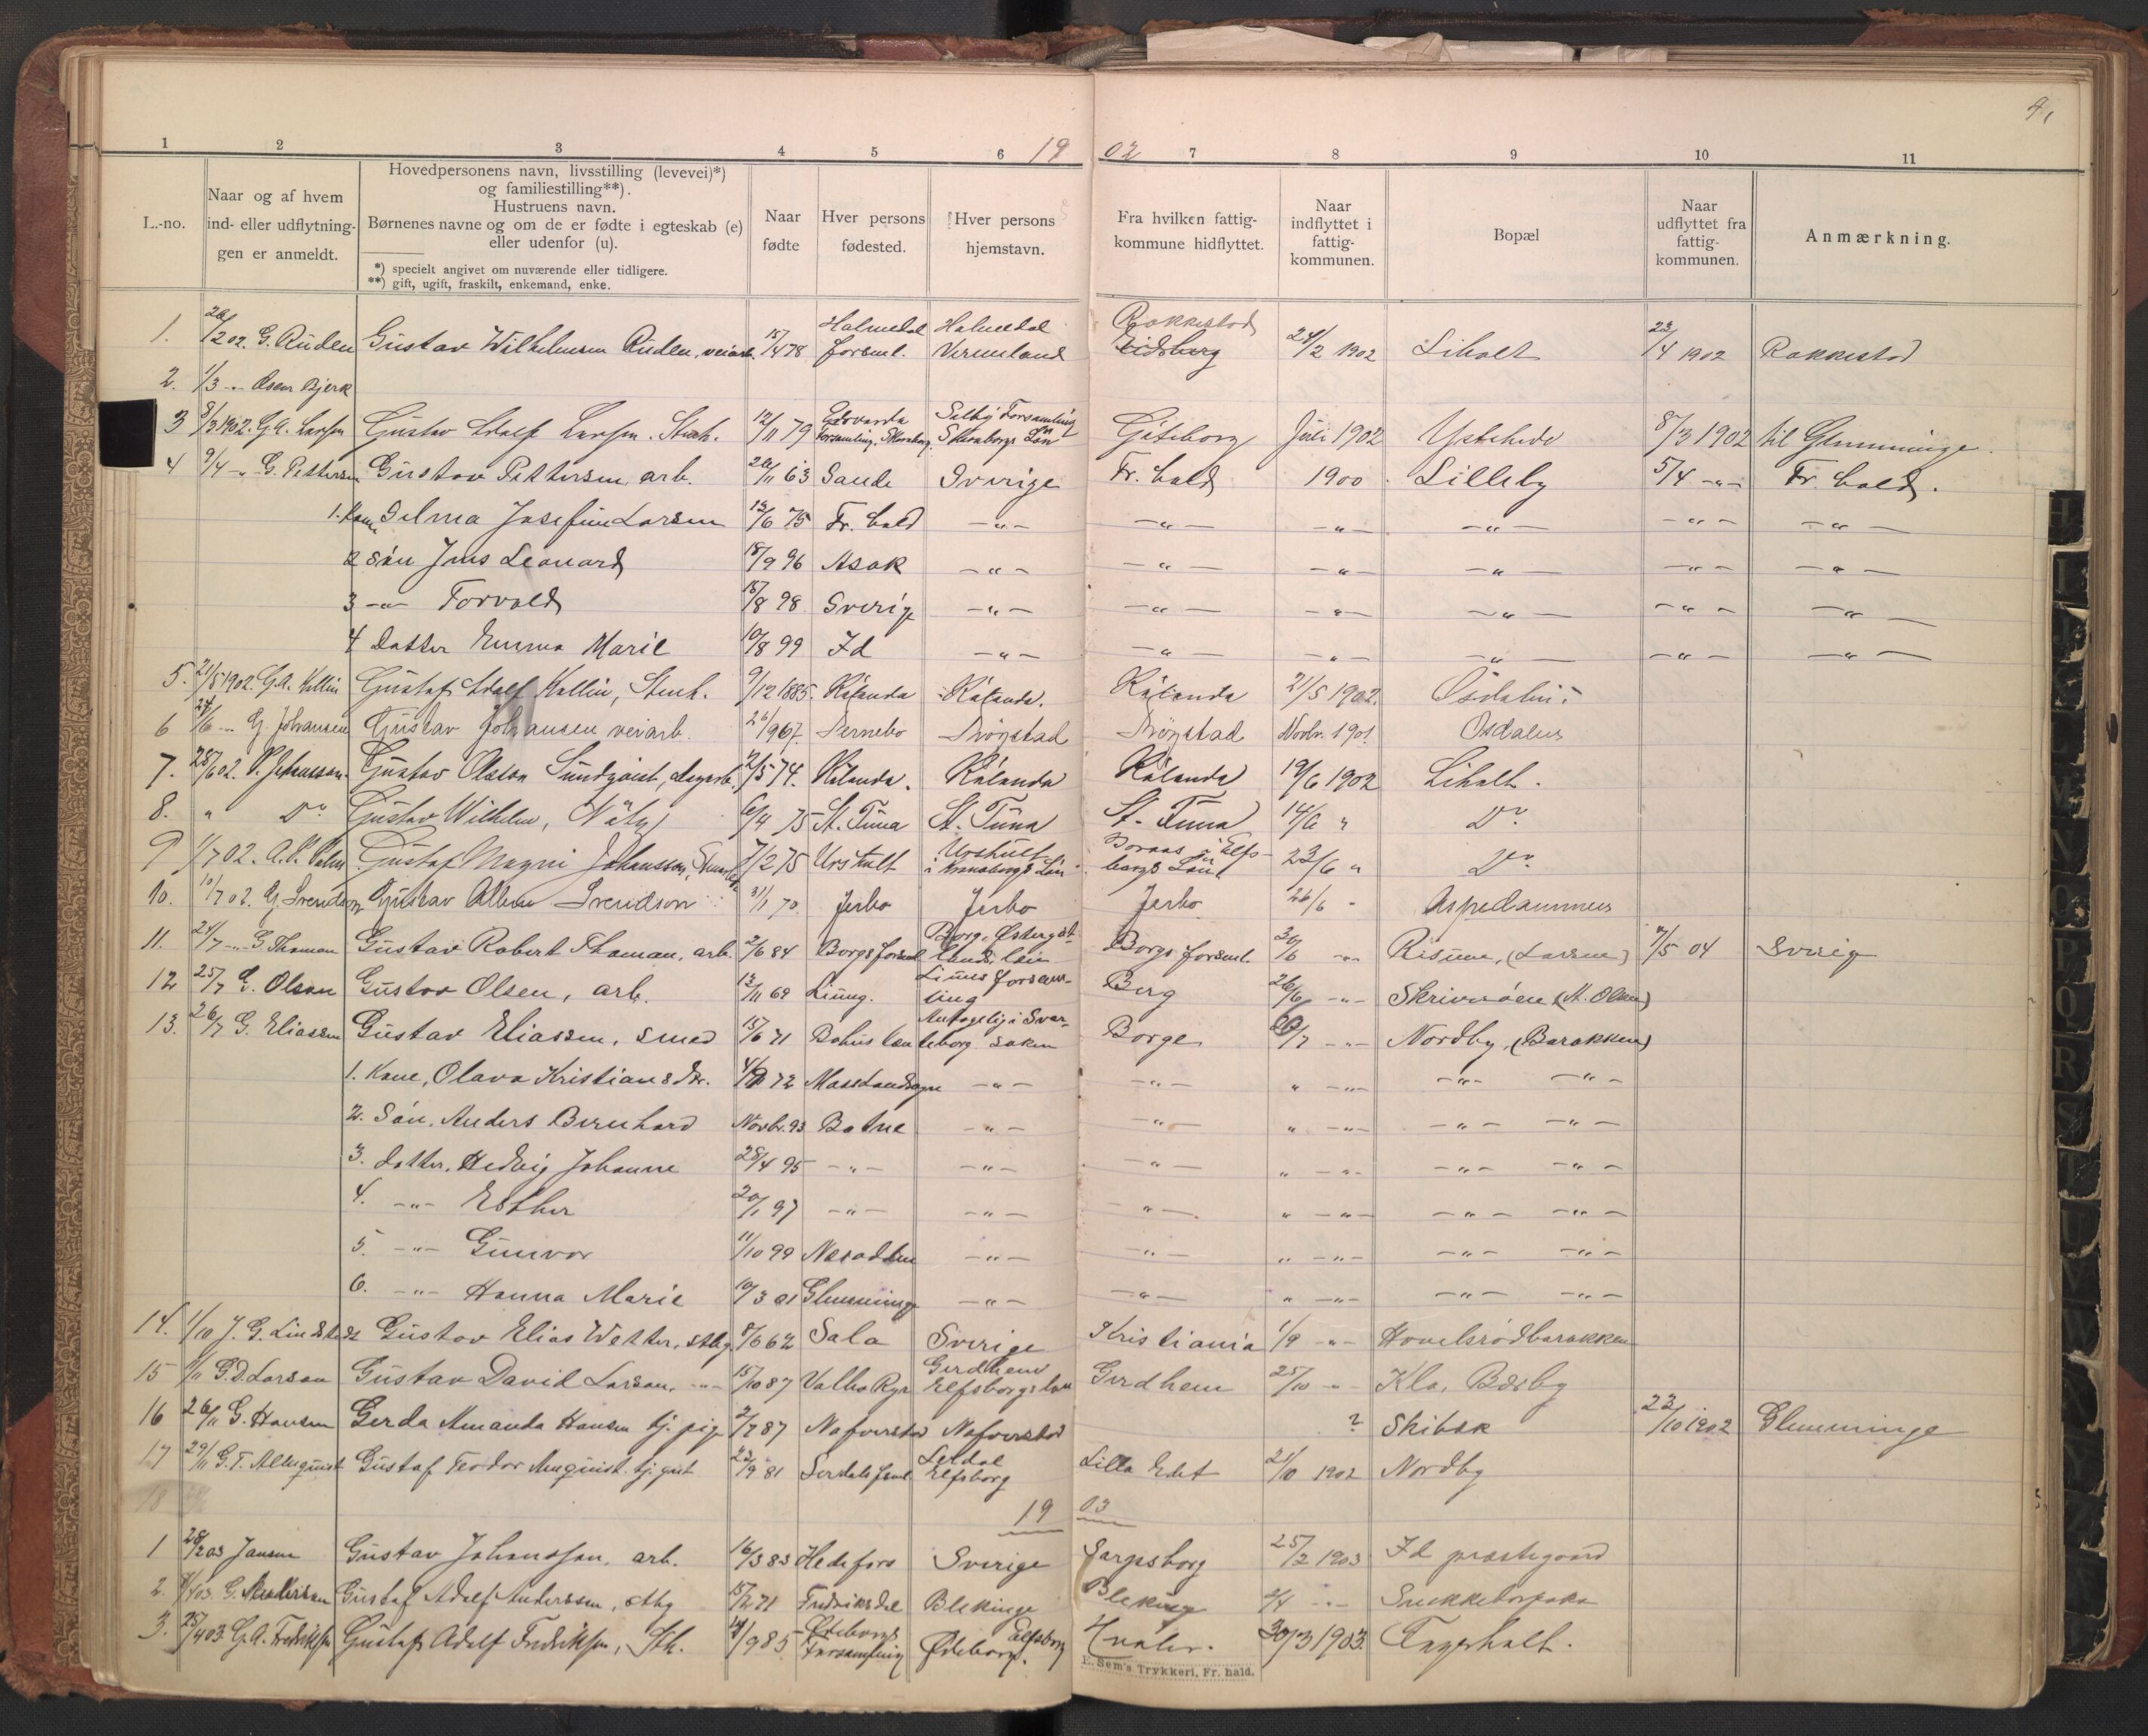 9,
1 2 3 4 5 6 19 02 7 8 9 10 11
L.-no.
Naar og af hvem
ind- eller udflytnin-
gen er anmeldt.
Hovedpersonens navn, livsstilling (levevei)*)
og familiestilling**).
Hustruens navn.
Børnenes navne og om de er fødte i egteskab (e)
eller udenfor (u).
*) specielt angivet om nuværende eller tidligere.
**) gift, ugift, fraskilt, enkemand, enke.
Naar
fødte
Hver persons
fødested.
Hver persons
hjemstavn.
Fra hvilken fattig-
kommune hidflyttet.
Naar
indflyttet i
fattig-
kommunen.
Bopæl
Naar
udflyttet fra
fattig-
kommunen.
Anmærkning.
1. 26/2 02. G. Rüden Gustav Wilhelmsen Rüden, veiarb. 15/4 78 Holmedal forsml. Holmedal Vermland Rakkestad Eidsberg 24/2 1902 Liholt 23/4 1902 Rakkestad
2. 1/3 -"- Osen Bjerk
3 8/3 1902. G.A. Larsen Gustav Adolf Larsen. Stenh. 12/11 79 Edsvarda Forsamling, Skaraborg Salby Forsamling Skaraborgs Län Göteborg Juli 1902 Ystehede 8/3 1902 til Glemminge.
4 9/4 -"- G. Pettersen Gustav Pettersen, arb. 20/11 63 Sande Sverige Fr.hald 1900 Lilleby 5/4 -"- Fr.hald.
1. Kone Selma Josefine Larsen 13/6 75 Fr.hald -"- -"- -"- -"- -"- -"-
2 Søn Jens Leonard 18/9 96 Asak -"- -"- -"- -"- -"- -"-
3 -"- Torvald 18/8 98 Sverige -"- -"- -"- -"- -"- -"-
4 Datter Emma Marie 10/8 99 Id -"- -"- -"- -"- -"- -"-
5. 21/5 1902. G.A. Kallin Gustaf Adolf Kallin, Stenh. 9/12 1885. Råtanda Kålanda. Kålanda 21/5 1902.
6 24/6 -"- G. Johansen Gustav Johansen veiarb. 26/9 67. Pernebo Trögstad Trögstad Novbr. 1901. Osdalen
7. 28/6 02. Gustav Olsson Sundquist, 2/5 74. Kålanda. Kålanda Kålanda 19/6 1902 Liholt.
8. " Do Gustav Wilhelm, 6/4 75 St. Tuna St. Tuna St. Tuna 14/6 " Do
9 1/7 02. Gustaf Magni Johansson, 7/2 75 Urshult Urshult i Kronobergs Län Boraas i Elfsborgs Län 23/6 " Do
10. 10/7 02. G. Svendson Gustav Albin Svendson 31/1 70 Jerbo Jerbo Jerbo 26/6 " Aspedammen
11. 24/7 -"- G. Thoman Gustav Robert Thoman, arb. 2/6 84 Borgs forsml. Borg, Østergötlands län Borgs forsml. 30/6 -"- Risum, (Larsen) 7/5 04 Sverig
12 25/7 G. Olsen Gustav Olsen, arb. 13/11 69 Liung. Liungs forsamling Berg 26/6 -"- Skriverøen (A. Olsen)
13. 26/7 G. Eliassen Gustav Eliassen, smed 15/6 71 Bohus län Borge /7 -"- Nordby, (Barakken)
1. Kone, Olava Kristiansdr. 72 -"- -"- " -"- -"- -"-
2. Søn, Anders Bernhard Novbr. 93 Botne -"- -"- " -"- -"- -"-
3. datter, Hedvig Johanne 28/4 95 -"- -"- -"- " -"- -"- -"-
4. -"- Esther 20/1 97 -"- -"- -"- " -"- -"- -"-
5. -"- Gunvor 11/10 99 Nesodden -"- -"- " -"- -"- -"-
6. -"- Hanna Marie 10/3 01 Glemminge -"- -"- " -"- -"- -"-
14. 1/10 J. G. Lindstedt Gustav Elias Wetter, sthg 8/6 62 Sala Sverige Kristiania 1/9 -"- Hovelsrødbarakken
15 1/11 G.D. Larsan Gustav David Larsan, -"- 15/10 87 Valbo Ryr Gerdhem Elfsborgs län Gerdhem 25/10 -"- Klo, Bærby
16 26/11 G. Hansen Gerda Amanda Hansen tj. pige 2/7 87 Nafverstad Nafverstad ? Skibæk 22/10 1902 Glemminge
17 29/11 G.T. Almquist Gustaf Teodor Almquist tj. gut 22/9 81 Lerdals forml. Lerdal Elfsborg Lilla Edet 21/10 1902 Nordby
18
19 03
1 28/2 03 Jansen Gustav Johansson, arb. 16/3 83 Hedefors Sverige Sarpsborg 25/2 1903 Id prestegaard
2. /4 03 G. Andersson Gustaf Adolf Anderssen, sthg 15/2 71 Fredriksdal Blekinge Bleking 2/4 -"-
3. 25/4 03 G.A. Fredriksen Gustaf Adolf Fredriksen, Sth. 14/9 85 Ødeborgs Forsamling Ødeborg. Elfsborg Hvaler. 30/3 1903. Tagerholt.
E. Sem's Trykkeri, Fr. hald.